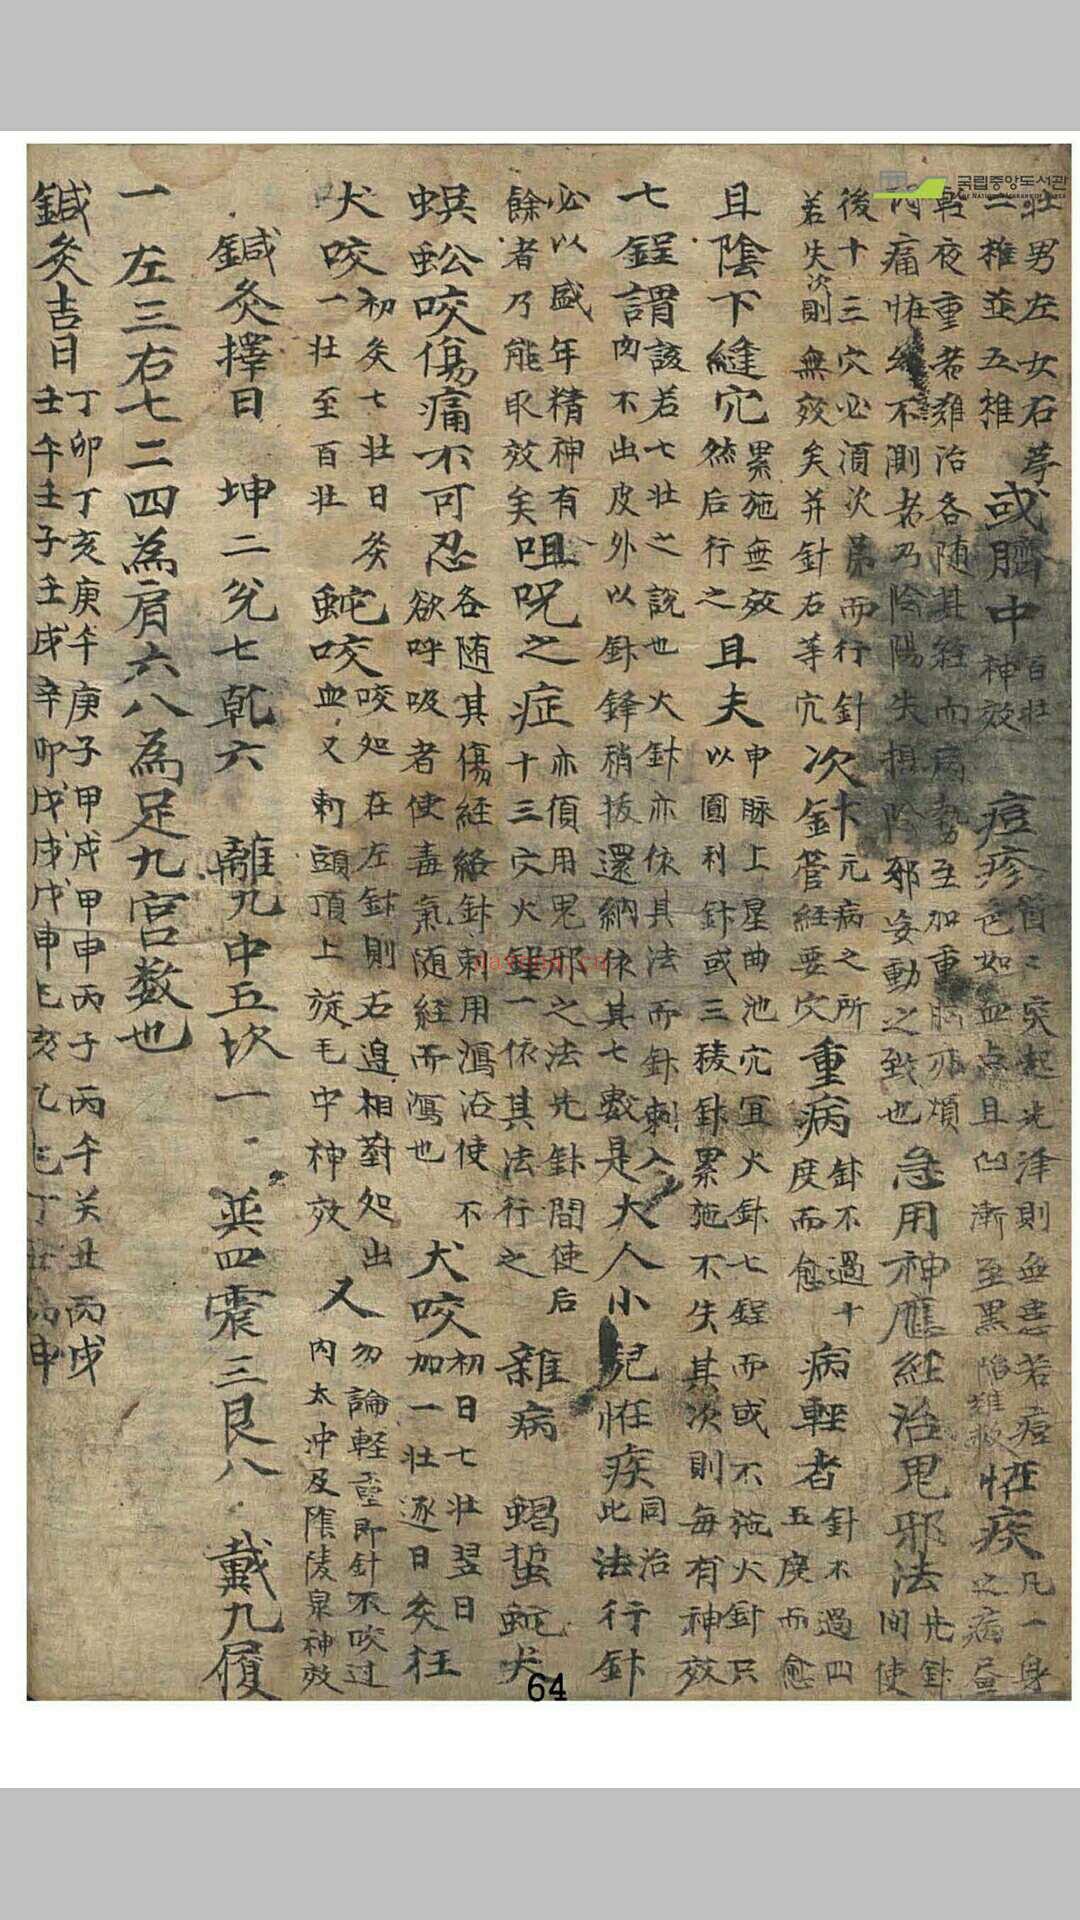 국립중앙도서관
壯男左女右等
二椎並五椎
或臍中
百壯
神效
痘疹
首〻突起光澤則無恙若痘
色如血点且凹漸至黑陷難救
怪疾
凡一身
之病晝
輕夜重者難治各随其經而病勢至加重胸亦煩
内痛怪
不測者乃陰陽失損陰邪妄動之致也
急用神應經治鬼邪法
先針
間使
後十三穴必湏次第而行針
若失次則無效矣并針右等穴
次針
元病之所
管經要穴
重病
針不過十
度而愈
病輕者
針不過四
五度而愈
且陰下縫穴
累施無效
然后行之
且夫
申脉上星曲池穴宜火針七鋥而或不施火針只
以圓利針或三稜針累施不失其次則每有神效
七鋥謂
該若七壯之說也火針亦依其法而針刺入
内不出皮外以針鋒稍拔還納依其七數是
大人小兒怪疾
同治
此法行針
必以盛年精神有
餘者乃能取效矣
咀呪之症
亦湏用鬼邪之法先針間使后
十三穴火鋥一依其法行之
雜病
蝎蜇蛇犬
蜈蚣咬傷痛不可忍
各随其傷経絡針刺用瀉法使不
欲呼吸者使毒氣随經而瀉也
犬咬
初日七壯翌日
加一壯逐日灸
狂
犬咬
初灸七壯日灸
一壯至百壯
蛇咬
咬処在左針則右邉相對処出
血又刺頭頂上旋毛中神效
又
勿論輕重即針不咬过
内太冲及陰陵泉神效
鍼灸擇日
坤二兌七乹六
離九中五坎一
㢲四震三艮八
戴九履
一左三右七二四為肩六八為足九宫数也
鍼灸吉日
丁卯丁亥庚午庚子甲戌甲申丙子丙午癸丑丙戌
壬午壬子壬戌辛卯戊戌戊申己亥乙巳丁
丙申
64